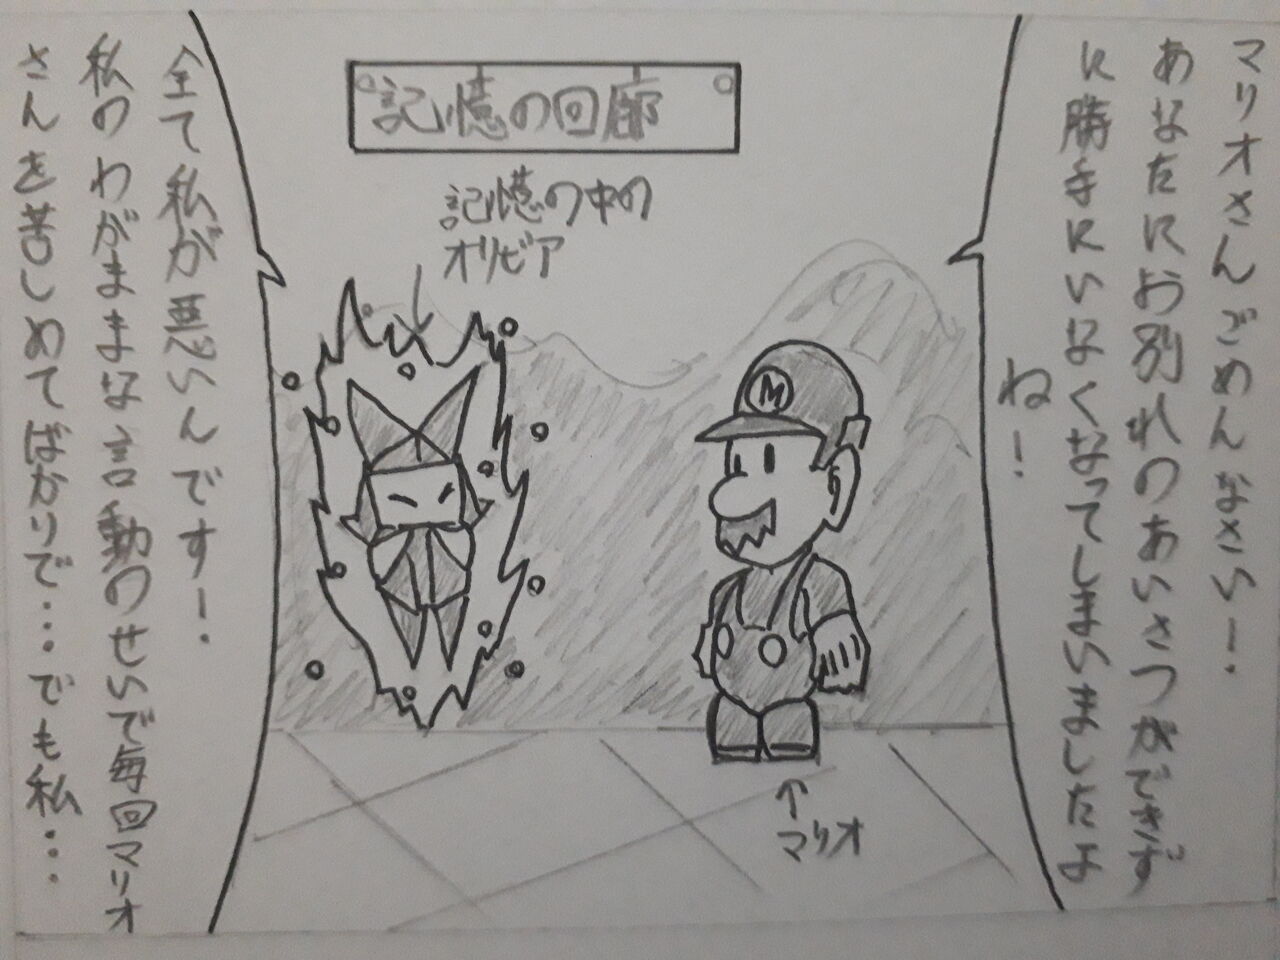 記憶の回廊
記憶の中の
オリビア
マリオさんごめんなさい!.
あなたにお別れのあいさつができず
に勝手にいなくなってしまいましたよ
ね!
全て私が悪いんです!.
私のわがままな言動のせいで毎回マリオ
さんを苦しめてばかりで...でも私...
M
マリオ